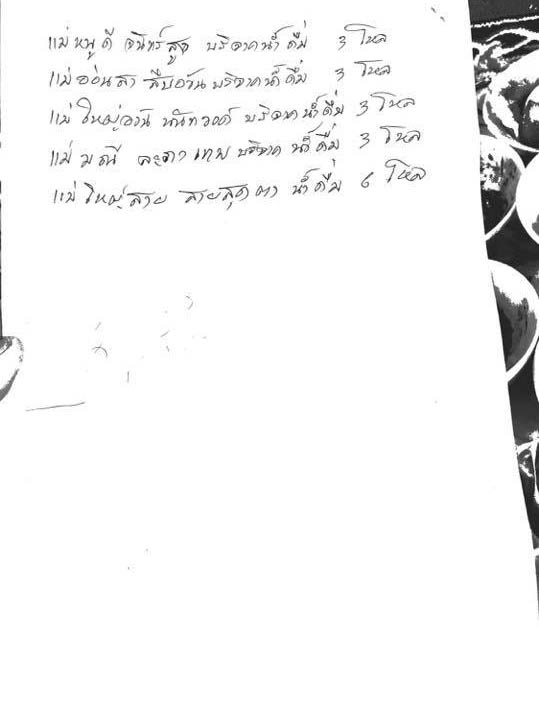 แม่หนูดี จันทร์สูง บริจาคน้ำดื่ม 3 โหล
แม่อ่อนสา สืบอวัน บริจาคน้ำดื่ม 3 โหล
แม่ใหญ่อวัน นันทวงค์ บริจาคน้ำดื่ม 3 โหล
แม่มณี ละดาเทพ บริจาค น้ำดื่ม 3 โหล
แม่ใหญ่สาย สายสุดตา น้ำดื่ม 6 โหล